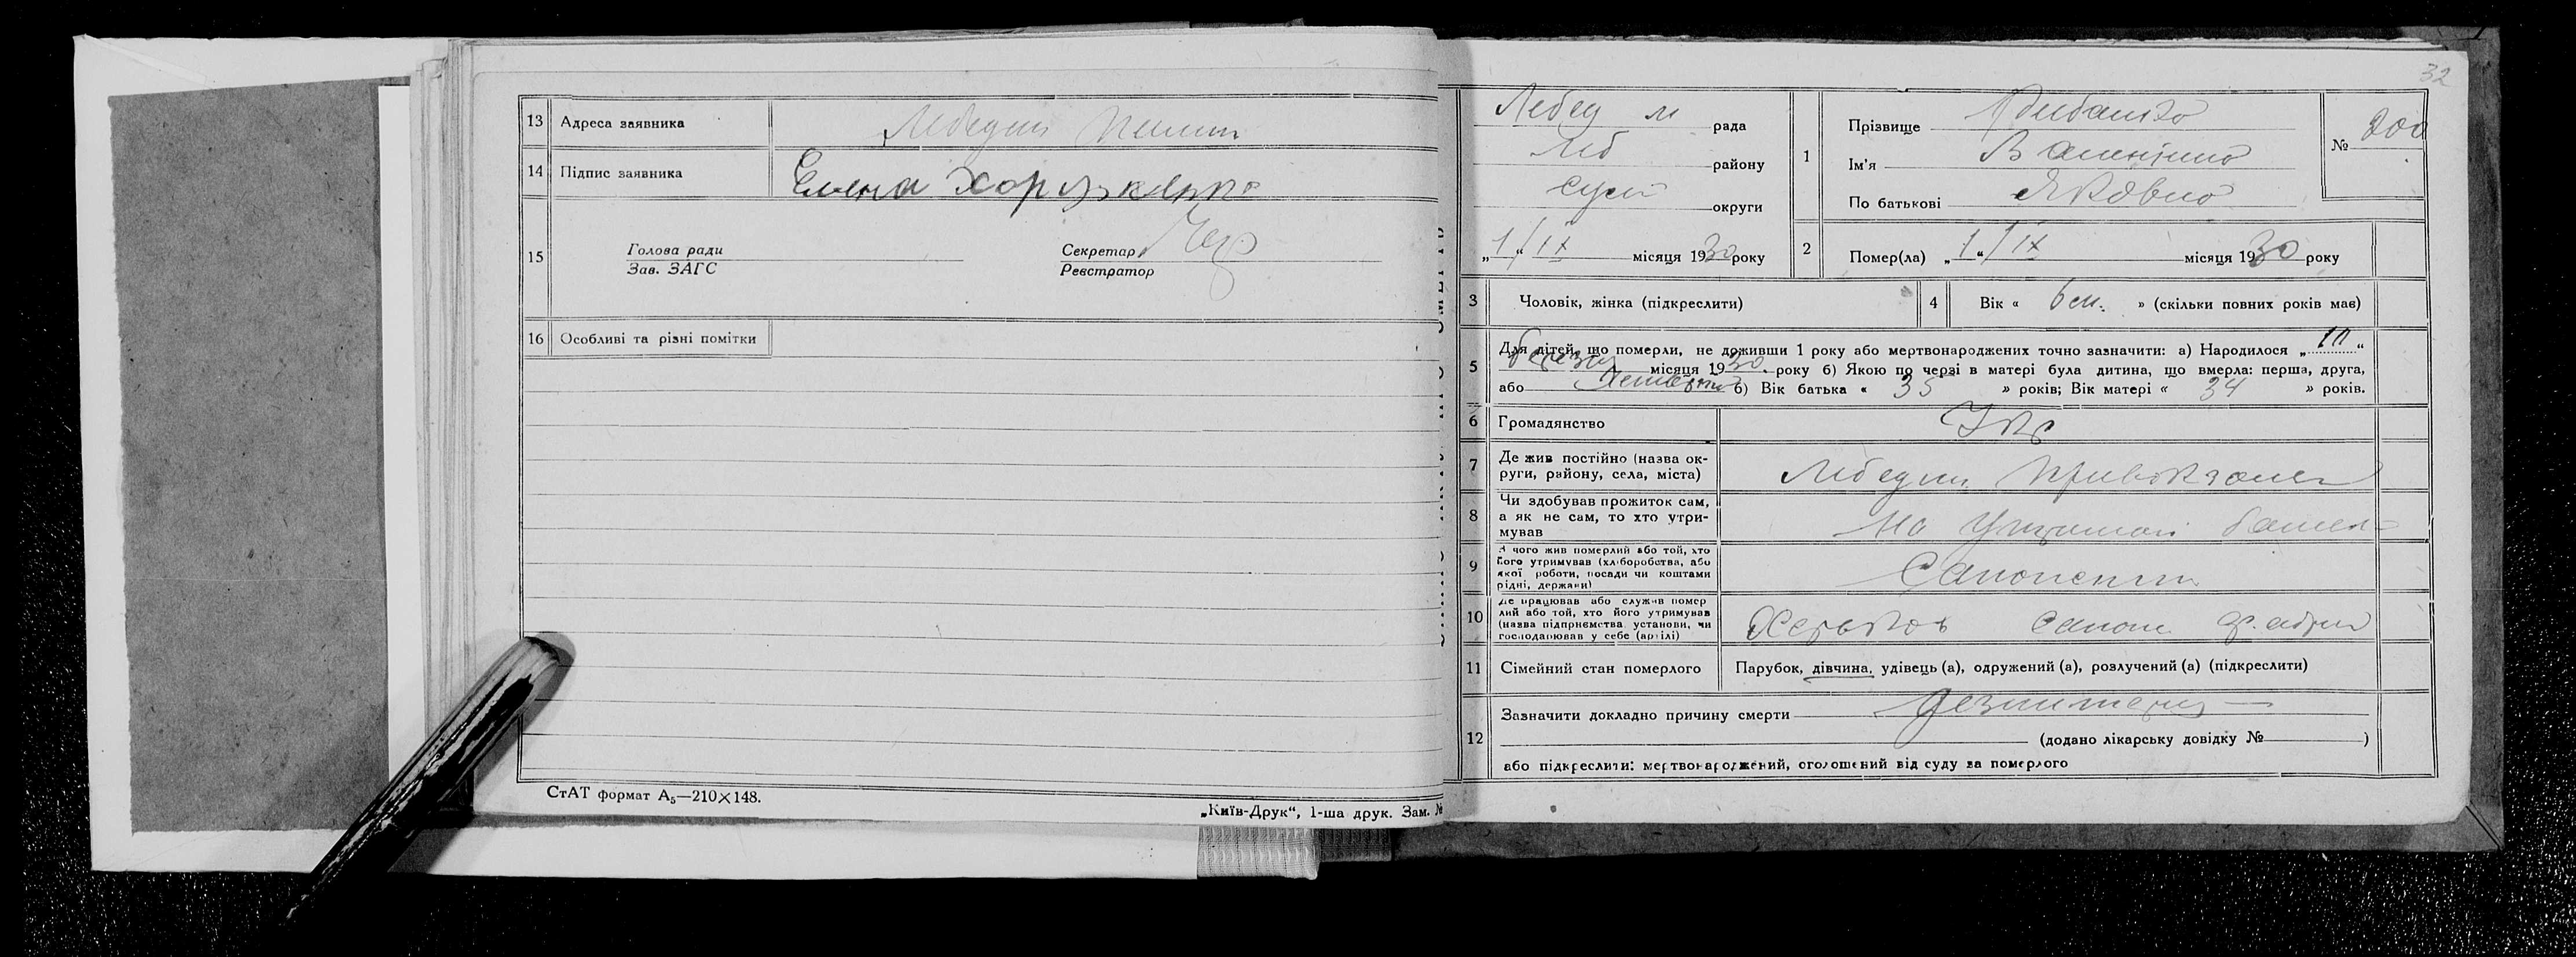 13 Адреса заявника Лебедин
14 Підпис заявника Елена Хоруженко
15 Голова ради
Зав. ЗАГС
Секретар
Реєстратор
16 Особливі та різні помітки
СтАТ формат А₅—210×148.
„Київ-Друк“, 1-ша друк. Зам. №
32
Лебед м рада
Леб району
Сум округи
„1“/IX місяця 1930 року
1 Прізвище
Ім'я Валентина
По батькові Яковна
№ 200
2 Помер(ла) „1“/IX місяця 1930 року
3 Чоловік, жінка (підкреслити)
4 Вік « 6 м. » (скільки повних років має)
5 Для дітей, що померли, не доживши 1 року або мертвонароджених точно зазначити: а) Народилося „10“
березня місяця 1930 року б) Якою по черзі в матері була дитина, що вмерла: перша, друга,
або четверта б) Вік батька « 35 » років; Вік матері « 34 » років.
6 Громадянство Укр
7 Де жив постійно (назва ок-
руги, району, села, міста) Лебедин Привокзальн
8 Чи здобував прожиток сам,
а як не сам, то хто утри-
мував На утриман батьк
9 З чого жив померлий або той, хто
його утримував (хліборобства, або
якої роботи, посади чи коштами
рідні, держави)
10 Де працював або служив помер
лий або той, хто його утримував
(назва підприємства установи, чи
господарював у себе (артілі) Харьков
11 Сімейний стан померлого Парубок, дівчина, удівець (а), одружений (а), розлучений (а) (підкреслити)
12 Зазначити докладно причину смерти Дезинтерия
(додано лікарську довідку № )
або підкреслити: мертвонароджений, оголошений від суду за померлого